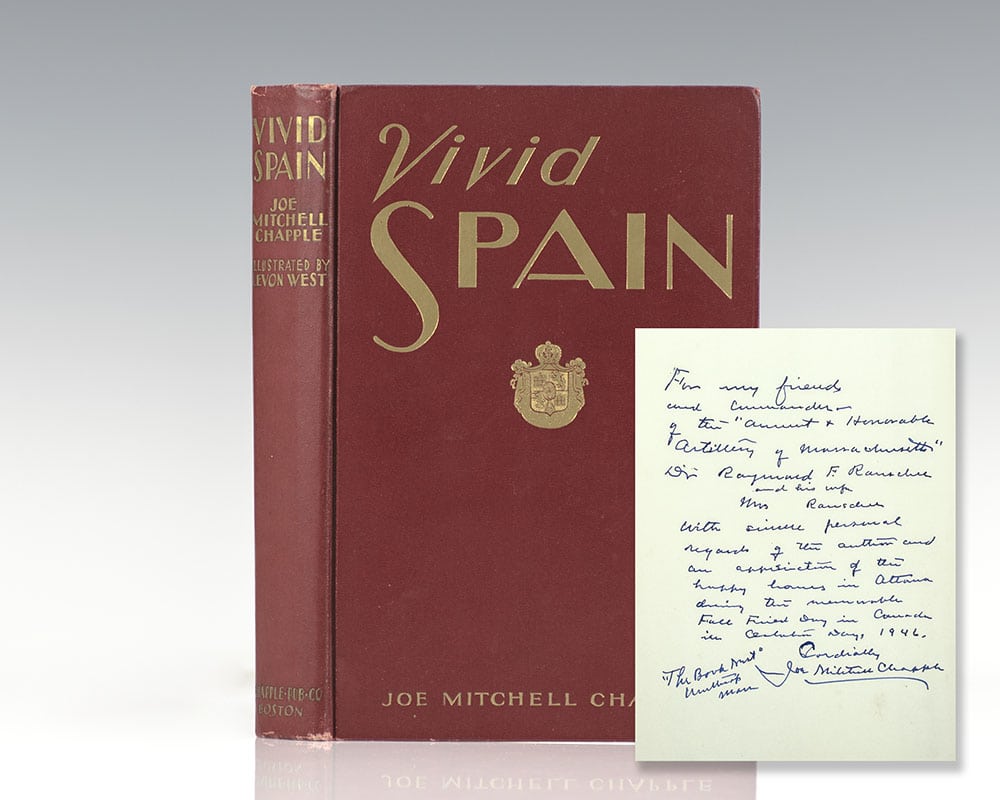 VIVID
SPAIN
JOE
MITCHELL
CHAPPLE
ILLUSTRATED BY
LEVON WEST
CHAPPLE·PUB·CO
BOSTON
Vivid
SPAIN
JOE MITCHELL CHA
For my friends
and Commander
of the "Ancient & Honorable
Artillery of Massachusetts"
Dr Raymond F.
and his wife
Mrs
With sincere personal
regards of the author and
an appreciation of the
happy hours in Ottawa
during the memorable
Fall Field Day in Canada
in October Day, 1946.
Cordially
Joe Mitchell Chapple
"The Book Nest"
Winthrop
Mass
JOE MITCHELL CHAPPLE